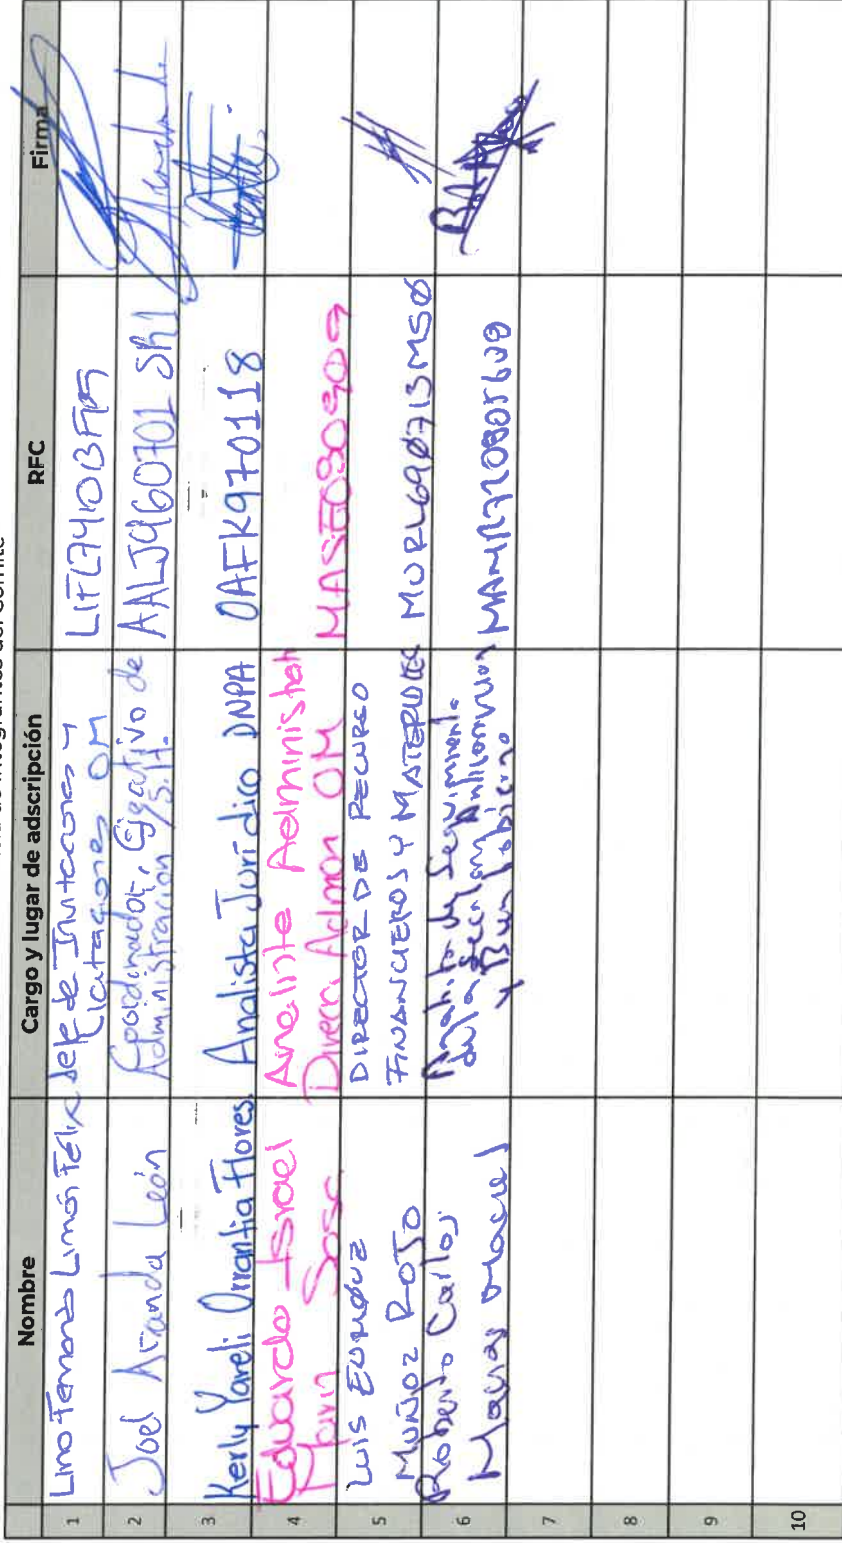 Lista de integrantes del Comité
Nombre Cargo y lugar de adscripción RFC Firma
1 Lino Fernando Limón Félix Jefe de Invitaciones y Licitaciones OM
2 Joel Aranda León Coordinador Ejecutivo de Administración S.H. AALJ960701 SR1
3 Kerly Yareli Orrantia Flores. Analista Jurídico DNPA OAFK970118
4 Eduardo Israel Marin Sosa Analista Administrat Direcc Admon OM MASE080909
5 LUIS ENRIQUE MUÑOZ ROJO DIRECTOR DE RECURSO FINANCIEROS Y MATERIALES MURL690713MS0
6 Roberto Carlos Macias Macias de Seguimiento de la Secretaria Anticorrupcion y Buen Gobierno
7
8
9
10